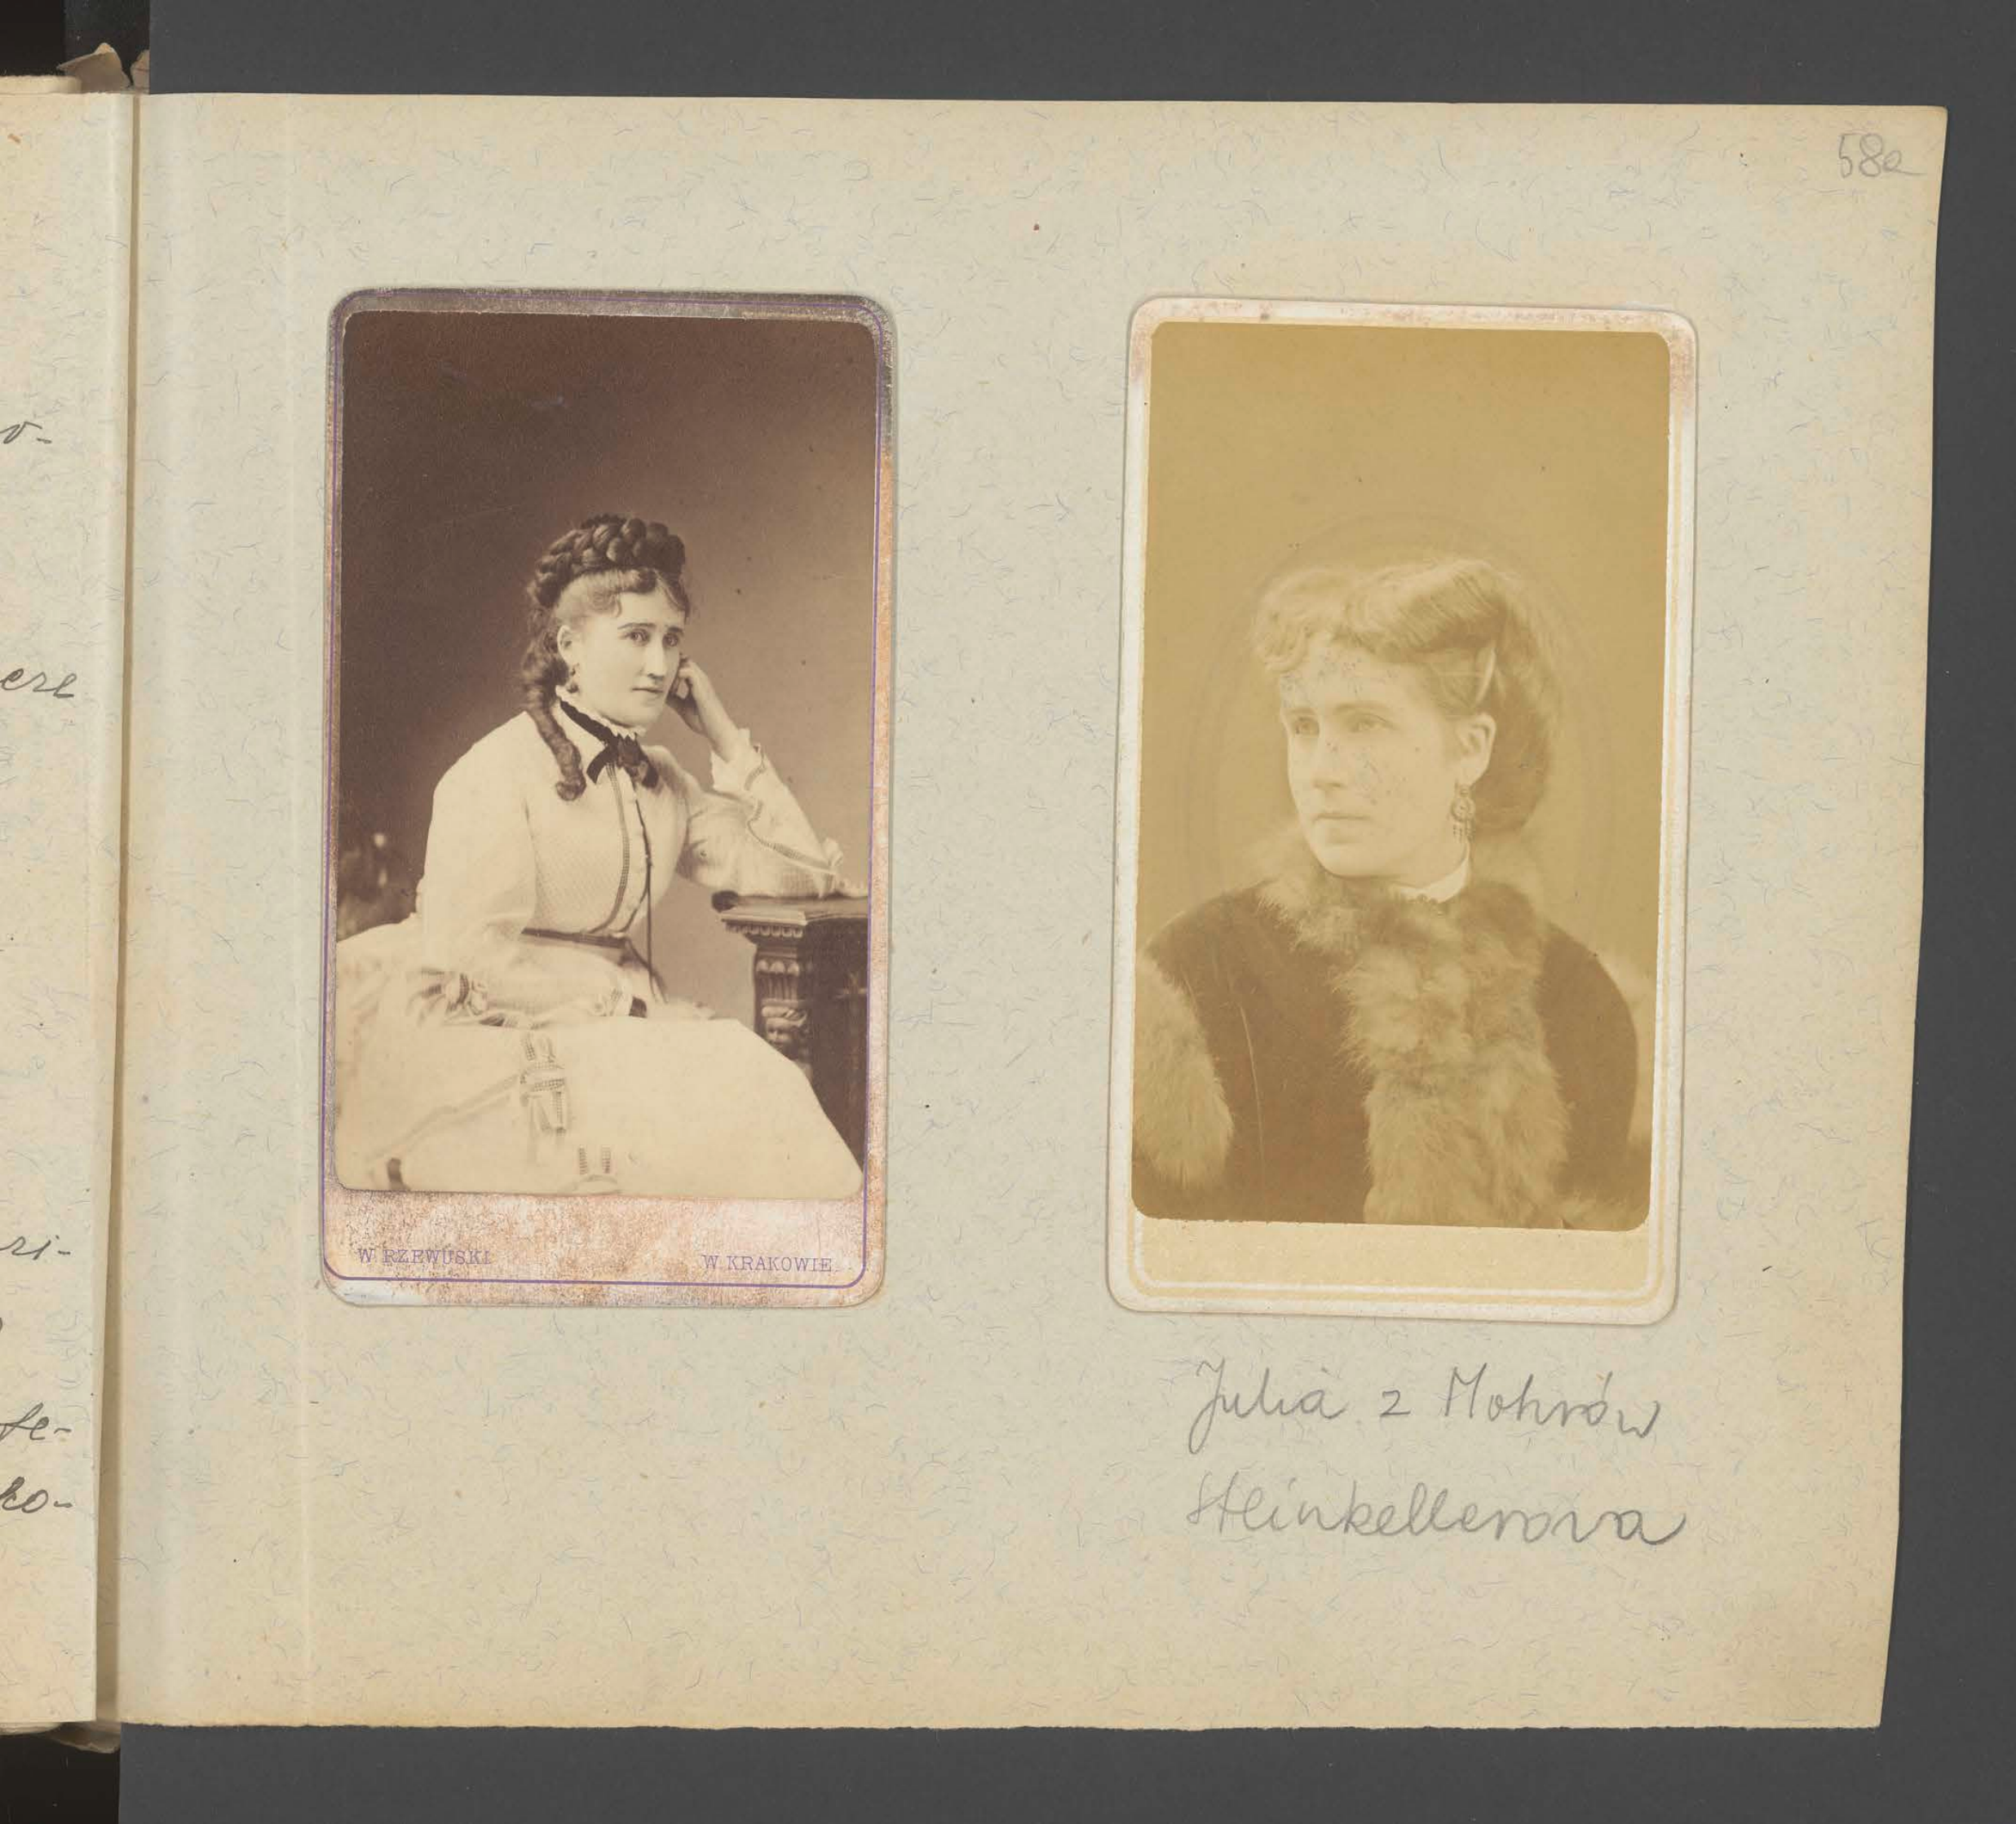 58a
o-
ere
W. RZEWUSKI W KRAKOWIE.
ri-
fe-
ko-
Julia z Mohrów
Steinkellerowa